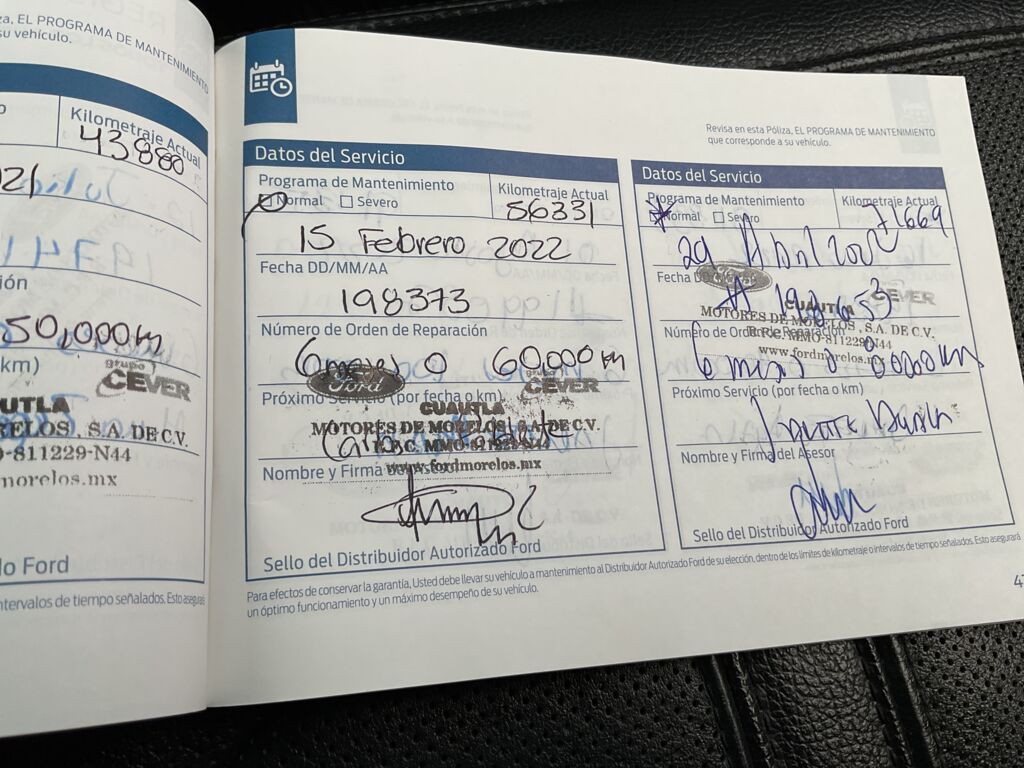 za, EL PROGRAMA DE MANTENIMIENTO
su vehículo.
Kilometraje Actual
43880
021
ión
50,000 km
km)
grupo
CEVER
AUTLA
RELOS, S.A. DE C.V.
O-811229-N44
morelos.mx
lo Ford
ntervalos de tiempo señalados. Esto asegurará
Datos del Servicio
Programa de Mantenimiento
Kilometraje Actual
Normal
Severo
56331
15 Febrero 2022
Fecha DD/MM/AA
198373
Número de Orden de Reparación
6 meses o 60,000 km
Ford
grupo
CEVER
Próximo Servicio (por fecha o km)
CUAUTLA
MOTORES DE MORELOS, S.A. DE C.V.
R.F.C. MMO-811229-N44
www.fordmorelos.mx
Nombre y Firma del Asesor
Sello del Distribuidor Autorizado Ford
Revisa en esta Póliza, EL PROGRAMA DE MANTENIMIENTO
que corresponde a su vehículo.
Datos del Servicio
Programa de Mantenimiento
Kilometraje Actual
Normal
Severo
71669
29 Abril
Fecha
CEVER
CUAUTLA
MOTORES DE MORELOS, S.A. DE C.V.
Número de Orden de Reparación
R.F.C. MMO-811229-N44
www.fordmorelos.mx
6 meses o
km
Próximo Servicio (por fecha o km)
Nombre y Firma del Asesor
Sello del Distribuidor Autorizado Ford
Para efectos de conservar la garantía, Usted debe llevar su vehículo a mantenimiento al Distribuidor Autorizado Ford de su elección, dentro de los límites de kilometraje o intervalos de tiempo señalados. Esto asegurará
un óptimo funcionamiento y un máximo desempeño de su vehículo.